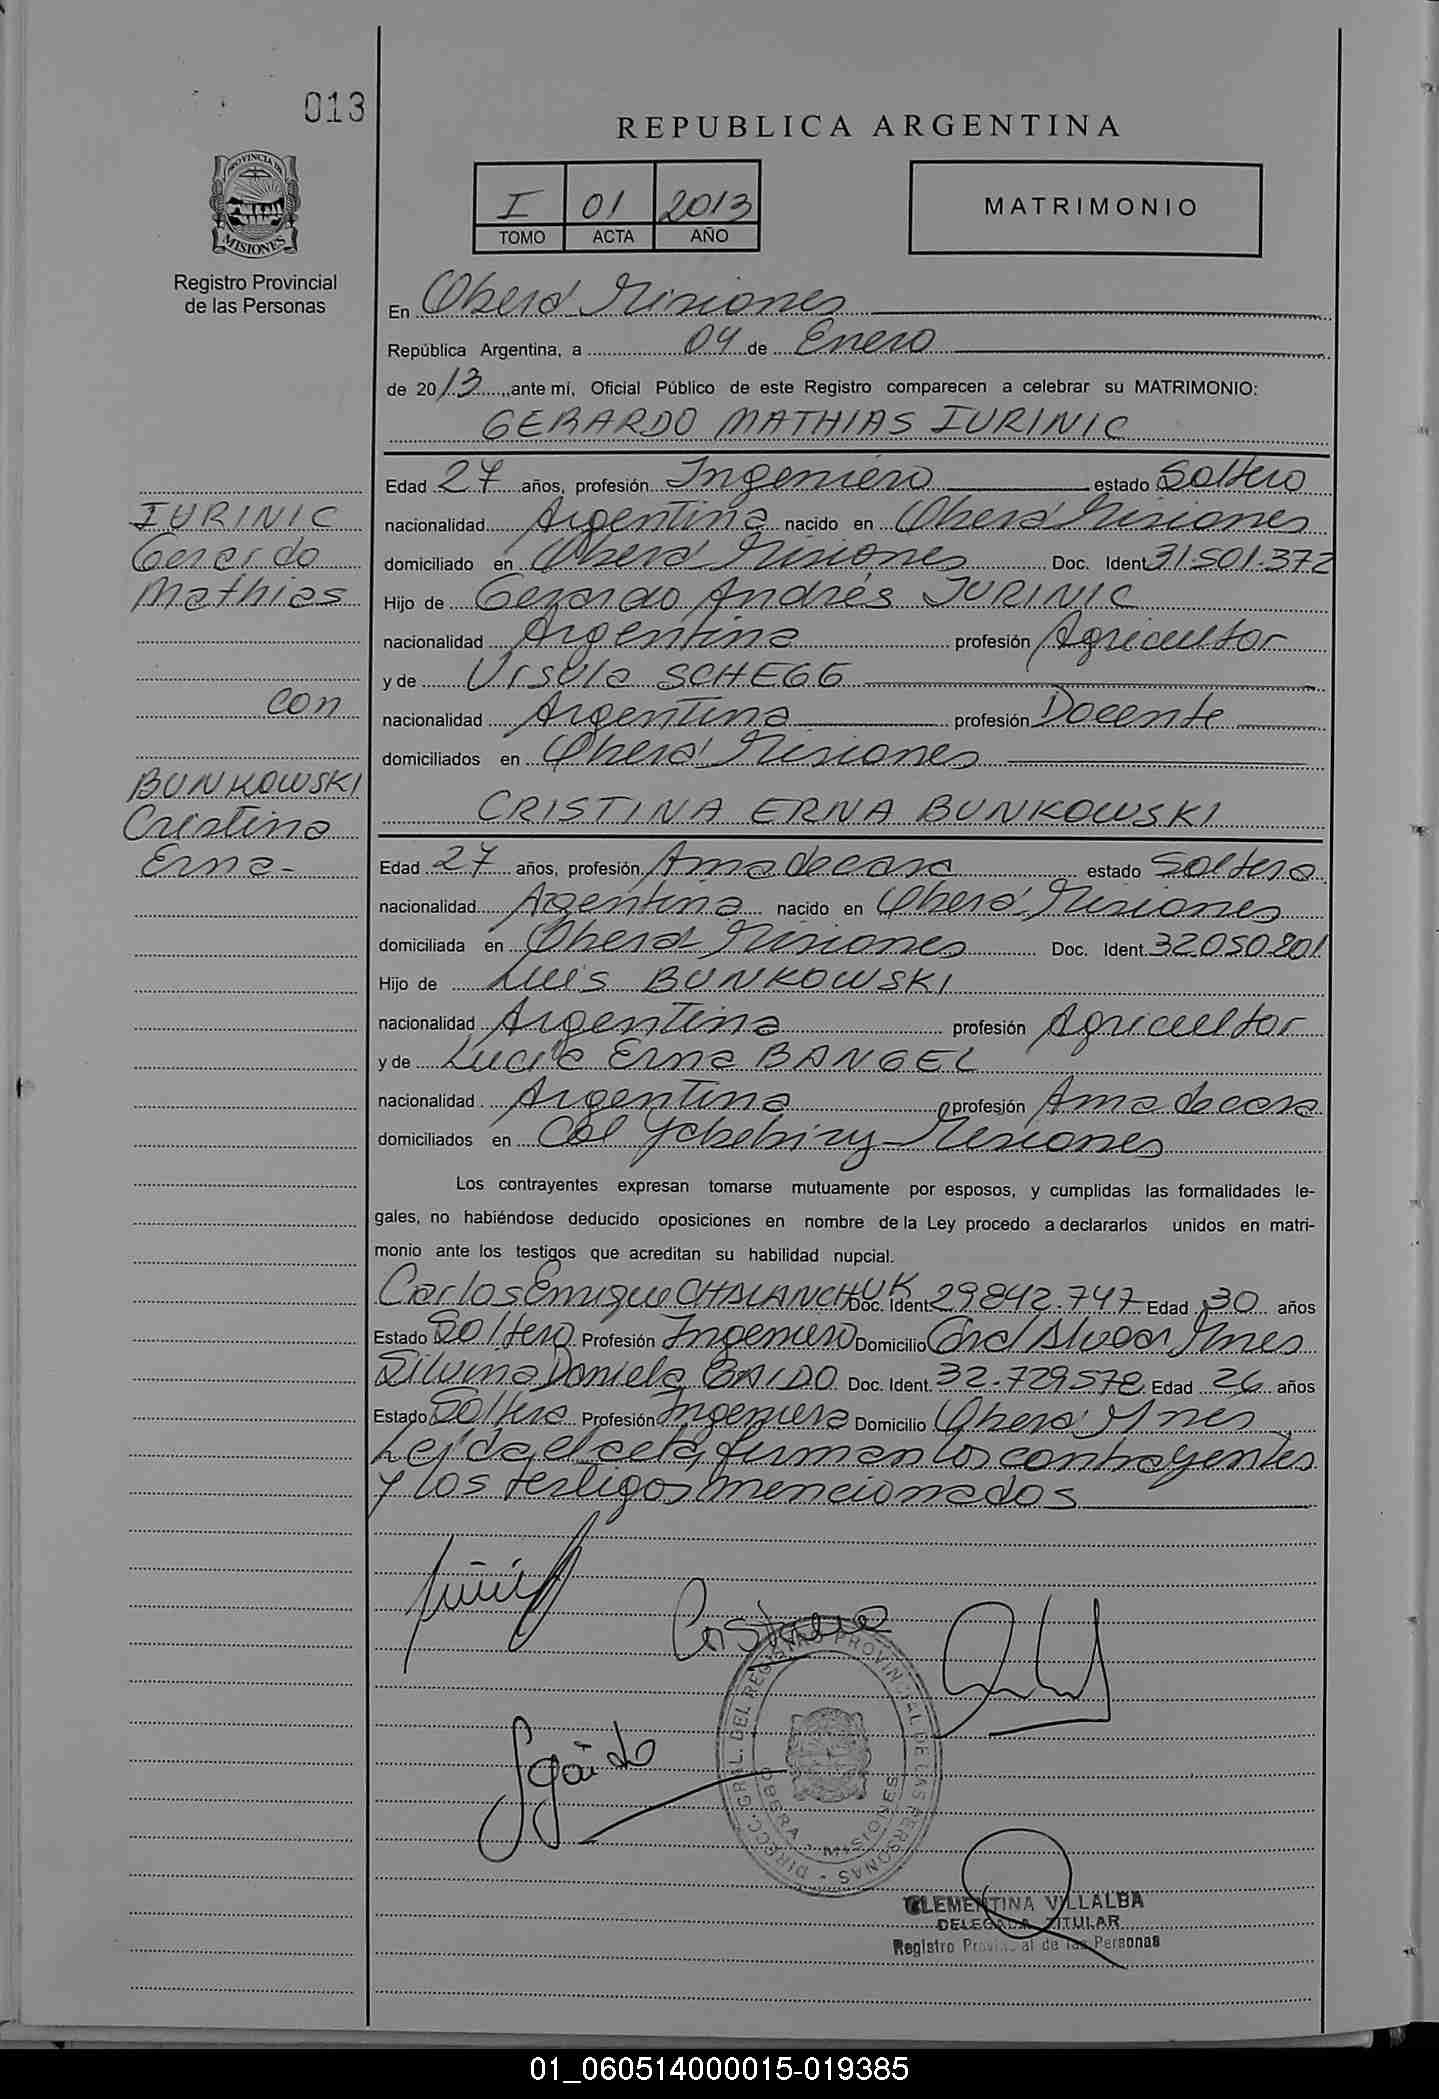 013
REPUBLICA ARGENTINA
PROVINCIA DE
MISIONES
Registro Provincial
de las Personas
I 01 2013
TOMO ACTA AÑO
MATRIMONIO
En Oberá Misiones
República Argentina, a 04 de Enero
de 2013, ante mí, Oficial Público de este Registro comparecen a celebrar su MATRIMONIO:
GERARDO MATHIAS IURINIC
Edad 27 años, profesión Ingeniero estado Soltero
nacionalidad Argentina nacido en Oberá Misiones
domiciliado en Oberá Misiones Doc. Ident 31.501.372
Hijo de Gerardo Andrés IURINIC
nacionalidad Argentina profesión Agricultor
y de Ursula SCHEGG
nacionalidad Argentina profesión Docente
domiciliados en Oberá Misiones
IURINIC
Gerardo
Mathias
con
BUNKOWSKI
Cristina
Erna-
CRISTINA ERNA BUNKOWSKI
Edad 27 años, profesión Ama de casa estado Soltera
nacionalidad Argentina nacido en Oberá Misiones
domiciliada en Oberá Misiones Doc. Ident. 32.050.801
Hijo de Luis BUNKOWSKI
nacionalidad Argentina profesión Agricultor
y de Lucía Erna BANGEL
nacionalidad Argentina profesión Ama de casa
domiciliados en Col Yabebiry-Misiones
Los contrayentes expresan tomarse mutuamente por esposos, y cumplidas las formalidades le-
gales, no habiéndose deducido oposiciones en nombre de la Ley procedo a declararlos unidos en matri-
monio ante los testigos que acreditan su habilidad nupcial.
Carlos Enrique CHALANCHUK Doc. Ident 29.842.747 Edad 30 años
Estado Soltero Profesión Ingeniero Domicilio Cnel Alvear Mnes
Silvina Daniela GAIDO Doc. Ident. 32.729578 Edad 26 años
Estado Soltera Profesión Ingeniera Domicilio Oberá Mnes
Leída el acta, firman los contrayentes
y los testigos mencionados
Cristina
Sgaido
DIRECC. GRAL. DEL REGISTRO PROVINCIAL DE LAS PERSONAS
OBERA - MISIONES
CLEMENTINA VILLALBA
DELEGADA TITULAR
Registro Provincial de las Personas
01_060514000015-019385